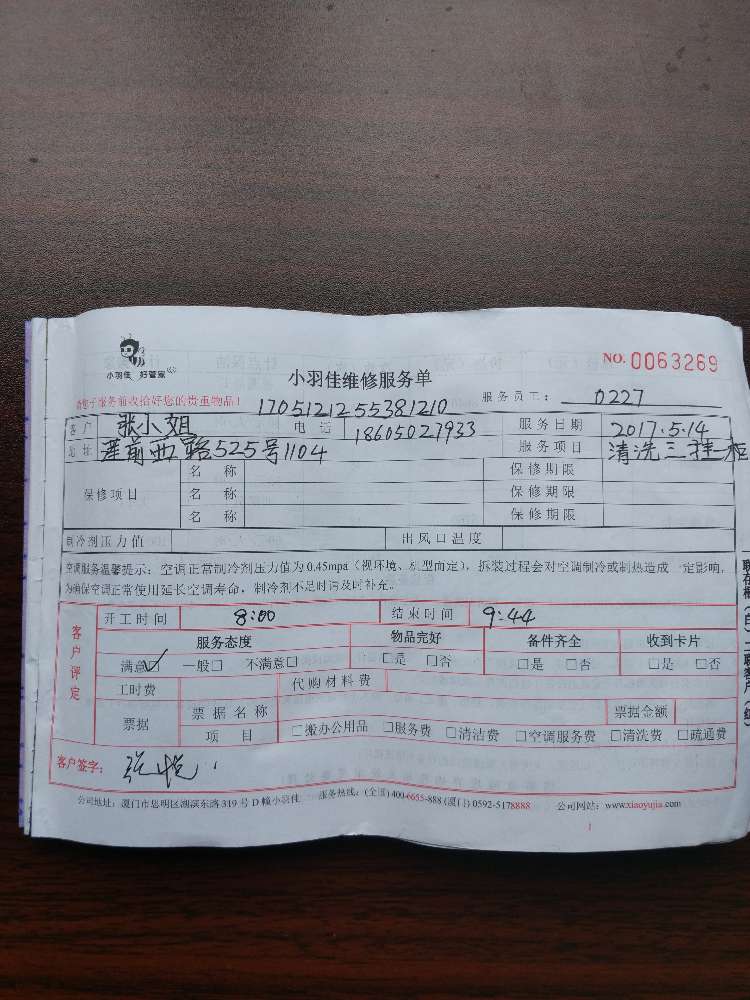 小羽佳 好管家
NO. 0063269
小羽佳维修服务单
服务前收拾好您的贵重物品！ 1705121255381210 服务员工： 0227
客户 张小姐 电话 18605027933 服务日期 2017.5.14
地址 莲前西路525号1104 服务项目 清洗三挂一柜
保修项目 名称 保修期限
名称 保修期限
名称 保修期限
制冷剂压力值 出风口温度
空调服务温馨提示：空调正常制冷剂压力值为0.45mpa（视环境、机型而定），拆装过程会对空调制冷或制热造成一定影响，
为确保空调正常使用延长空调寿命，制冷剂不足时请及时补充。
客户评定
开工时间 8:00 结束时间 9:44
服务态度 物品完好 备件齐全 收到卡片
满意☑ 一般□ 不满意□ □是 □否 □是 □否 □是 □否
工时费 代购材料费
票据 票据名称 票据金额
项目 □搬办公用品 □服务费 □清洁费 □空调服务费 □清洗费 □疏通费
客户签字：
公司地址：厦门市思明区湖滨东路319号D幢小羽佳 服务热线：(全国)400-6655-888 (厦门)0592-5178888 公司网站：www.xiaoyujia.com
1